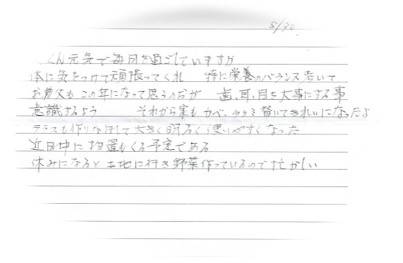 8/30
くん元気で毎日を過ごしていますか
体に気をつけて頑張ってくれ 特に栄養のバランス
お父もこの年になって思うのだが 歯、耳、目を大事にする事
意識するよう それから家もカベ、を替いできれいになったよ
テラスも作りなおして大きく明るく使いやすくなった
近日中に物置もくる予定である
休みになると土地に行き野菜作っているので忙しい